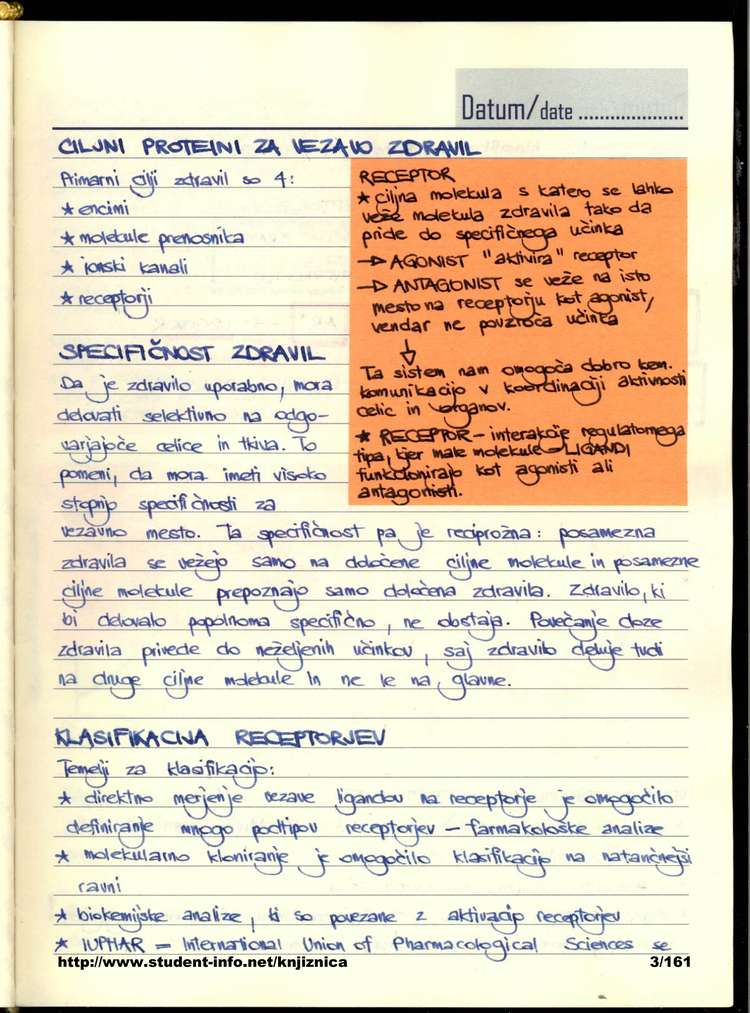 Datum/date ....................
CILJNI PROTEINI ZA VEZAVO ZDRAVIL
Primarni cilji zdravil so 4:
★ encimi
★ molekule prenosnika
★ ionski kanali
★ receptorji
RECEPTOR
★ ciljna molekula s katero se lahko
veže molekula zdravila tako da
pride do specifičnega učinka
→ AGONIST "aktivira" receptor
→ ANTAGONIST se veže na isto
mesto na receptorju kot agonist,
vendar ne povzroča učinka
↓
Ta sistem nam omogoča dobro kem.
komunikacijo v koordinaciji aktivnosti
celic in organov.
★ RECEPTOR – interakcije regulatornega
tipa, kjer male molekule – LIGANDI
funkcionirajo kot agonisti ali
antagonisti.
SPECIFIČNOST ZDRAVIL
Da je zdravilo uporabno, mora
delovati selektivno na odgo-
varjajoče celice in tkiva. To
pomeni, da mora imeti visoko
stopnjo specifičnosti za
vezavno mesto. Ta specifičnost pa je recipročna: posamezna
zdravila se vežejo samo na določene ciljne molekule in posamezne
ciljne molekule prepoznajo samo določena zdravila. Zdravilo, ki
bi delovalo popolnoma specifično, ne obstaja. Povečanje doze
zdravila privede do neželjenih učinkov, saj zdravilo deluje tudi
na druge ciljne molekule in ne le na glavne.
KLASIFIKACIJA RECEPTORJEV
Temelji za klasifikacijo:
★ direktno merjenje vezave ligandov na receptorje je omogočilo
definiranje mnogo podtipov receptorjev – farmakološke analize
★ molekularno kloniranje je omogočilo klasifikacijo na natančnejši
ravni
★ biokemijske analize, ki so povezane z aktivacijo receptorjev
★ IUPHAR = International Union of Pharmacological Sciences se
http://www.student-info.net/knjiznica 3/161